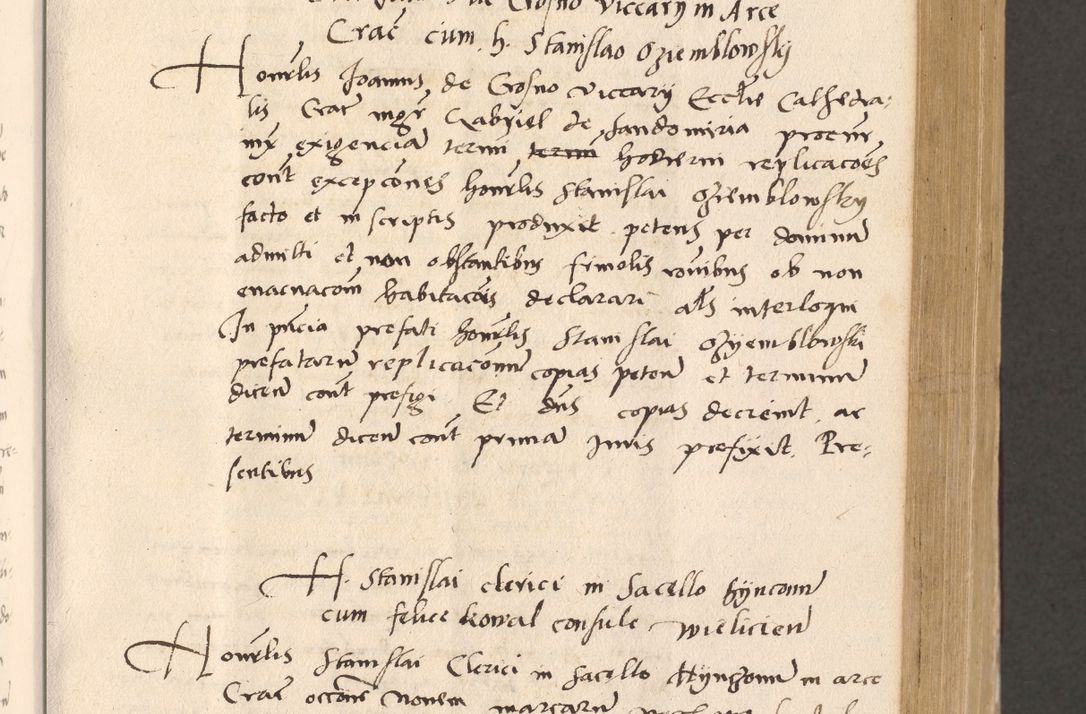 de Crosno Viccarÿ in Arce
Crac̄ cum h. Stanislao Oziemblowskj
Honȓlis Joannis de Crosno Viccarÿ Eccliē Cathedra-
lis Crac̄ mgȓ Gabriel de Sandomiria procūr
inx̄ exigenciā termī termī hodierni replicacōēs
cont̄ excepcōnes honȓlis Stanislai Oziemblowsky
facto et in scriptis produxit petens per dominū
admitti et non obstantibus frivolis rōnibus ob non
euacuacōm habitacōis declarari al̄s interloqui
In pn̄cia prefati honȓlis Stanislai Ozyemblowski
prefatarū replicacōnū copias petēn et terminū
dicēn cont̄ prefigi Et dn̄s copias decreuit ac
terminū dicēn cont̄ primā Juris prefixit. Pre-
sentibus
H. Stanislai clerici in Sacello hynconis
cum felice kowal consule Wieliciēn
Honȓlis Stanislai Clerici in Sacello Hynconis in arce
Crac̄ occōne Nouem marcarū